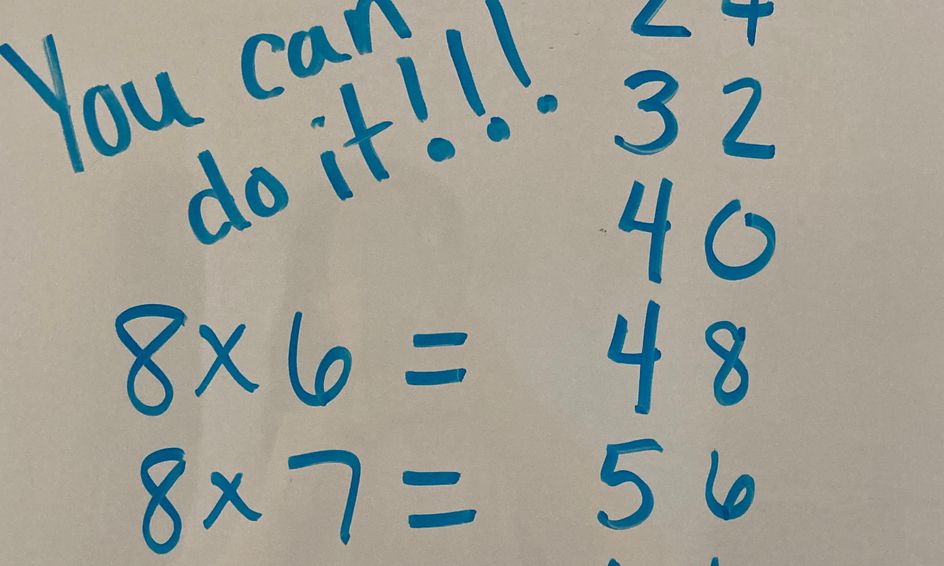 You can
do it!!!
24
32
40
8x6= 48
8x7= 56